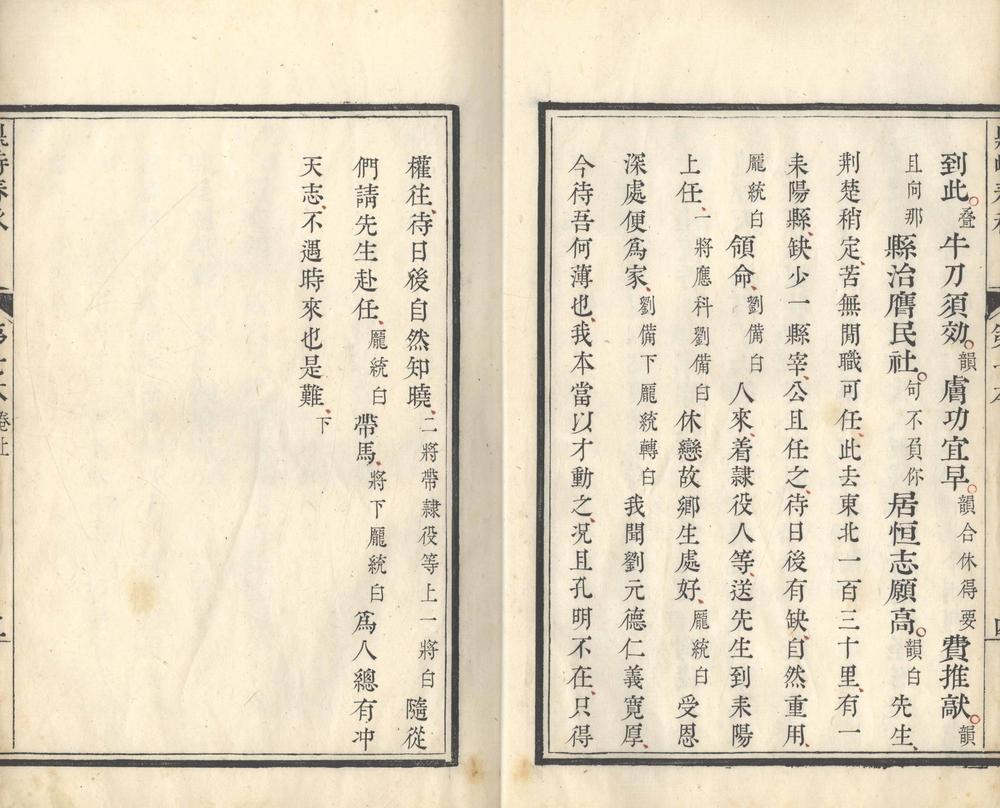 到此。叠牛刀須效。韻膚功宜早。韻合休得要費推敲。韻
且向那縣治膺民社。句不負你居恒志願高。韻白先生、
荆楚稍定、苦無閒職可任、此去東北一百三十里、有一
耒陽縣、缺少一縣宰、公且任之、待日後有缺、自然重用、
龐統白領命、劉備白人來、着隸役人等、送先生到耒陽
上任、一將應科劉備白休戀故鄉生處好、龐統白受恩
深處便爲家、劉備下龐統轉白我聞劉元德仁義寬厚、
今待吾何薄也、我本當以才動之、况且孔明不在、只得
權往、待日後自然知曉、二將帶隸役等上一將白隨從
們請先生赴任、龐統白帶馬、將下龐統白爲人總有冲
天志、不遇時來也是難、下